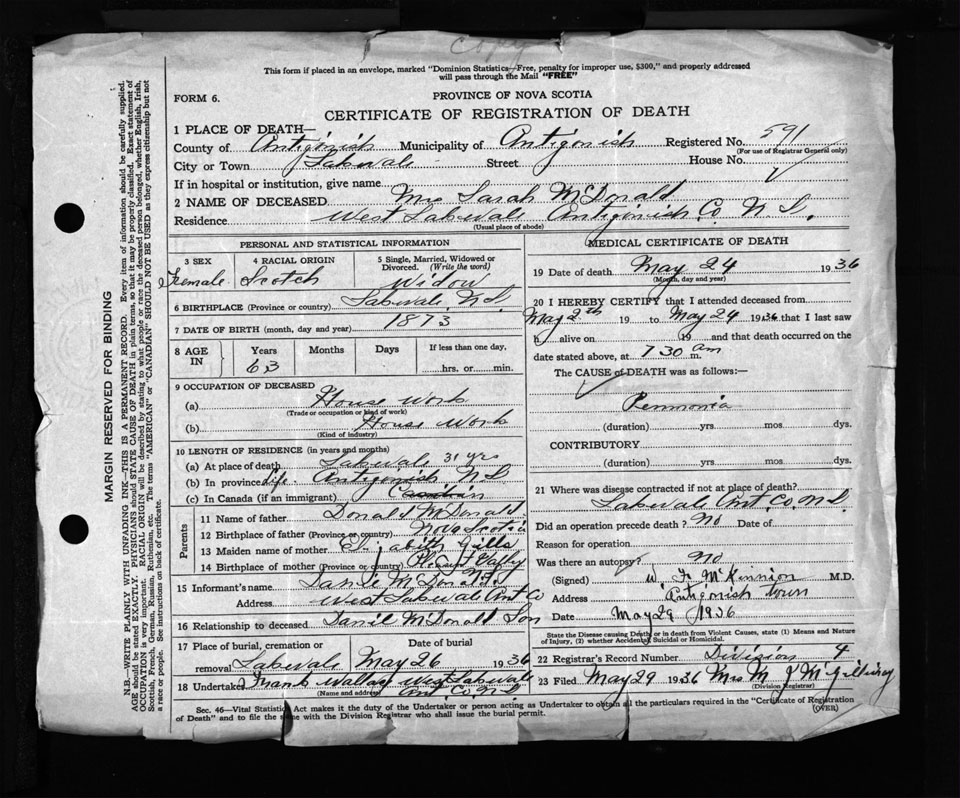 Copy
This form if placed in an envelope, marked "Dominion Statistics—Free, penalty for improper use, $300," and properly addressed
will pass through the Mail "FREE"
FORM 6.
PROVINCE OF NOVA SCOTIA
CERTIFICATE OF REGISTRATION OF DEATH
1 PLACE OF DEATH—
County of Antigonish Municipality of Antigonish Registered No. 591
(For use of Registrar General only)
City or Town Lakevale Street House No.
If in hospital or institution, give name
2 NAME OF DECEASED Mrs Sarah McDonald
Residence West Lakevale Antigonish Co N.S.
(Usual place of abode)
PERSONAL AND STATISTICAL INFORMATION
3 SEX 4 RACIAL ORIGIN 5 Single, Married, Widowed or
Divorced. (Write the word)
Female Scotch Widow
6 BIRTHPLACE (Province or country) Lakevale N.S.
7 DATE OF BIRTH (month, day and year) 1873
8 AGE IN Years Months Days If less than one day,
63 hrs. or min.
9 OCCUPATION OF DECEASED
(a) House Work
(Trade or occupation or kind of work)
(b) House Work
(Kind of industry)
10 LENGTH OF RESIDENCE (in years and months)
(a) At place of death Lakevale 31 yrs
(b) In province Life Antigonish N S
(c) In Canada (if an immigrant) Canadian
Parents
11 Name of father Donald McDonald
12 Birthplace of father (Province or country) Nova Scotia
13 Maiden name of mother Gillis
14 Birthplace of mother (Province or country)
15 Informant's name McDonald
Address West Lakevale Ant Co
16 Relationship to deceased Daniel McDonald Son
17 Place of burial, cremation or Date of burial
removal Lakevale May 26 1936
18 Undertaker Frank Wallace West Lakevale
(Name and address) Ant. Co. N S
MEDICAL CERTIFICATE OF DEATH
19 Date of death May 24 1936
(Month, day and year)
20 I HEREBY CERTIFY that I attended deceased from
May 2th 19 to May 24 1936 that I last saw
h alive on 19 and that death occurred on the
date stated above, at 7 30 am m.
The CAUSE of DEATH was as follows:—
Penmonia
(duration) yrs. mos. dys.
CONTRIBUTORY
(duration) yrs. mos. dys.
21 Where was disease contracted if not at place of death?
Lakevale Ant. Co. N.S.
Did an operation precede death? No Date of
Reason for operation
Was there an autopsy? No
(Signed) W. F. McKinnion M.D.
Address Antigonish town
Date May 29 1936
State the Disease causing Death or in death from Violent Causes, state (1) Means and Nature
of Injury, (2) whether Accidental, Suicidal or Homicidal.
22 Registrar's Record Number Division 4
23 Filed May 29 1936 Mrs M J McGillivray
(Division Registrar)
Sec. 46—Vital Statistics Act makes it the duty of the Undertaker or person acting as Undertaker to obtain all the particulars required in the "Certificate of Registration
of Death" and to file the same with the Division Registrar who shall issue the burial permit.
(OVER)
MARGIN RESERVED FOR BINDING
N.B.—WRITE PLAINLY WITH UNFADING INK—THIS IS A PERMANENT RECORD. Every item of information should be carefully supplied.
AGE should be stated EXACTLY. PHYSICIANS should STATE CAUSE OF DEATH in plain terms, so that it may be properly classified. Exact statement of
OCCUPATION is very important. RACIAL ORIGIN will be described by stating to what people or race the deceased person belonged, whether English, Irish,
Scottish, French, German, Russian, Ruthenian, etc. The terms "AMERICAN" or "CANADIAN" SHOULD NOT BE USED as they express citizenship but not
a race or people. See instructions on back of certificate.